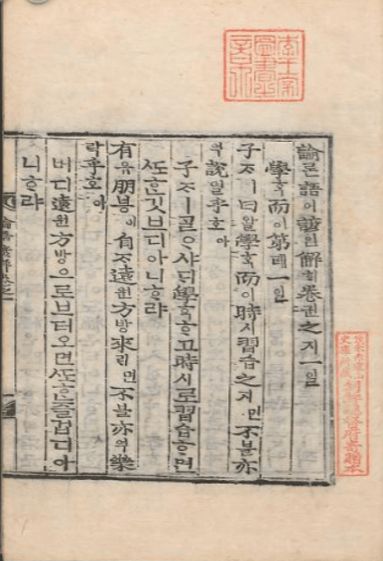 論론語어諺언解ᄒᆡ卷권之지一일
學ᄒᆞᆨ而이第뎨一일
子ᄌᆞㅣ曰왈學ᄒᆞᆨ而이時시習습之지면不블亦
역說열乎호아
子ᄌᆞㅣᄀᆞᆯᄋᆞ샤ᄃᆡ學ᄒᆞᆨᄒᆞ고時시로習습ᄒᆞ면
ᄯᅩᄒᆞᆫ깃브디아니ᄒᆞ랴
有유朋붕이自ᄌᆞ遠원方방來ᄅᆡ면不블亦역樂
락乎호아
버디遠원方방으로브터오면ᄯᅩᄒᆞᆫ즐겁디아
니ᄒᆞ랴
李王家圖書之章